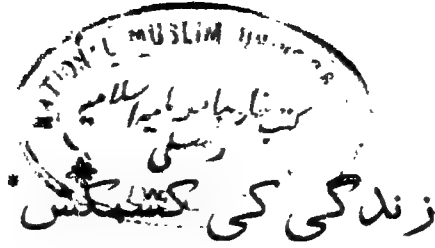 NATIONAL MUSLIM
کتب خانہ جامعہ ملیہ اسلامیہ
دہلی
زندگی کی کشمکش